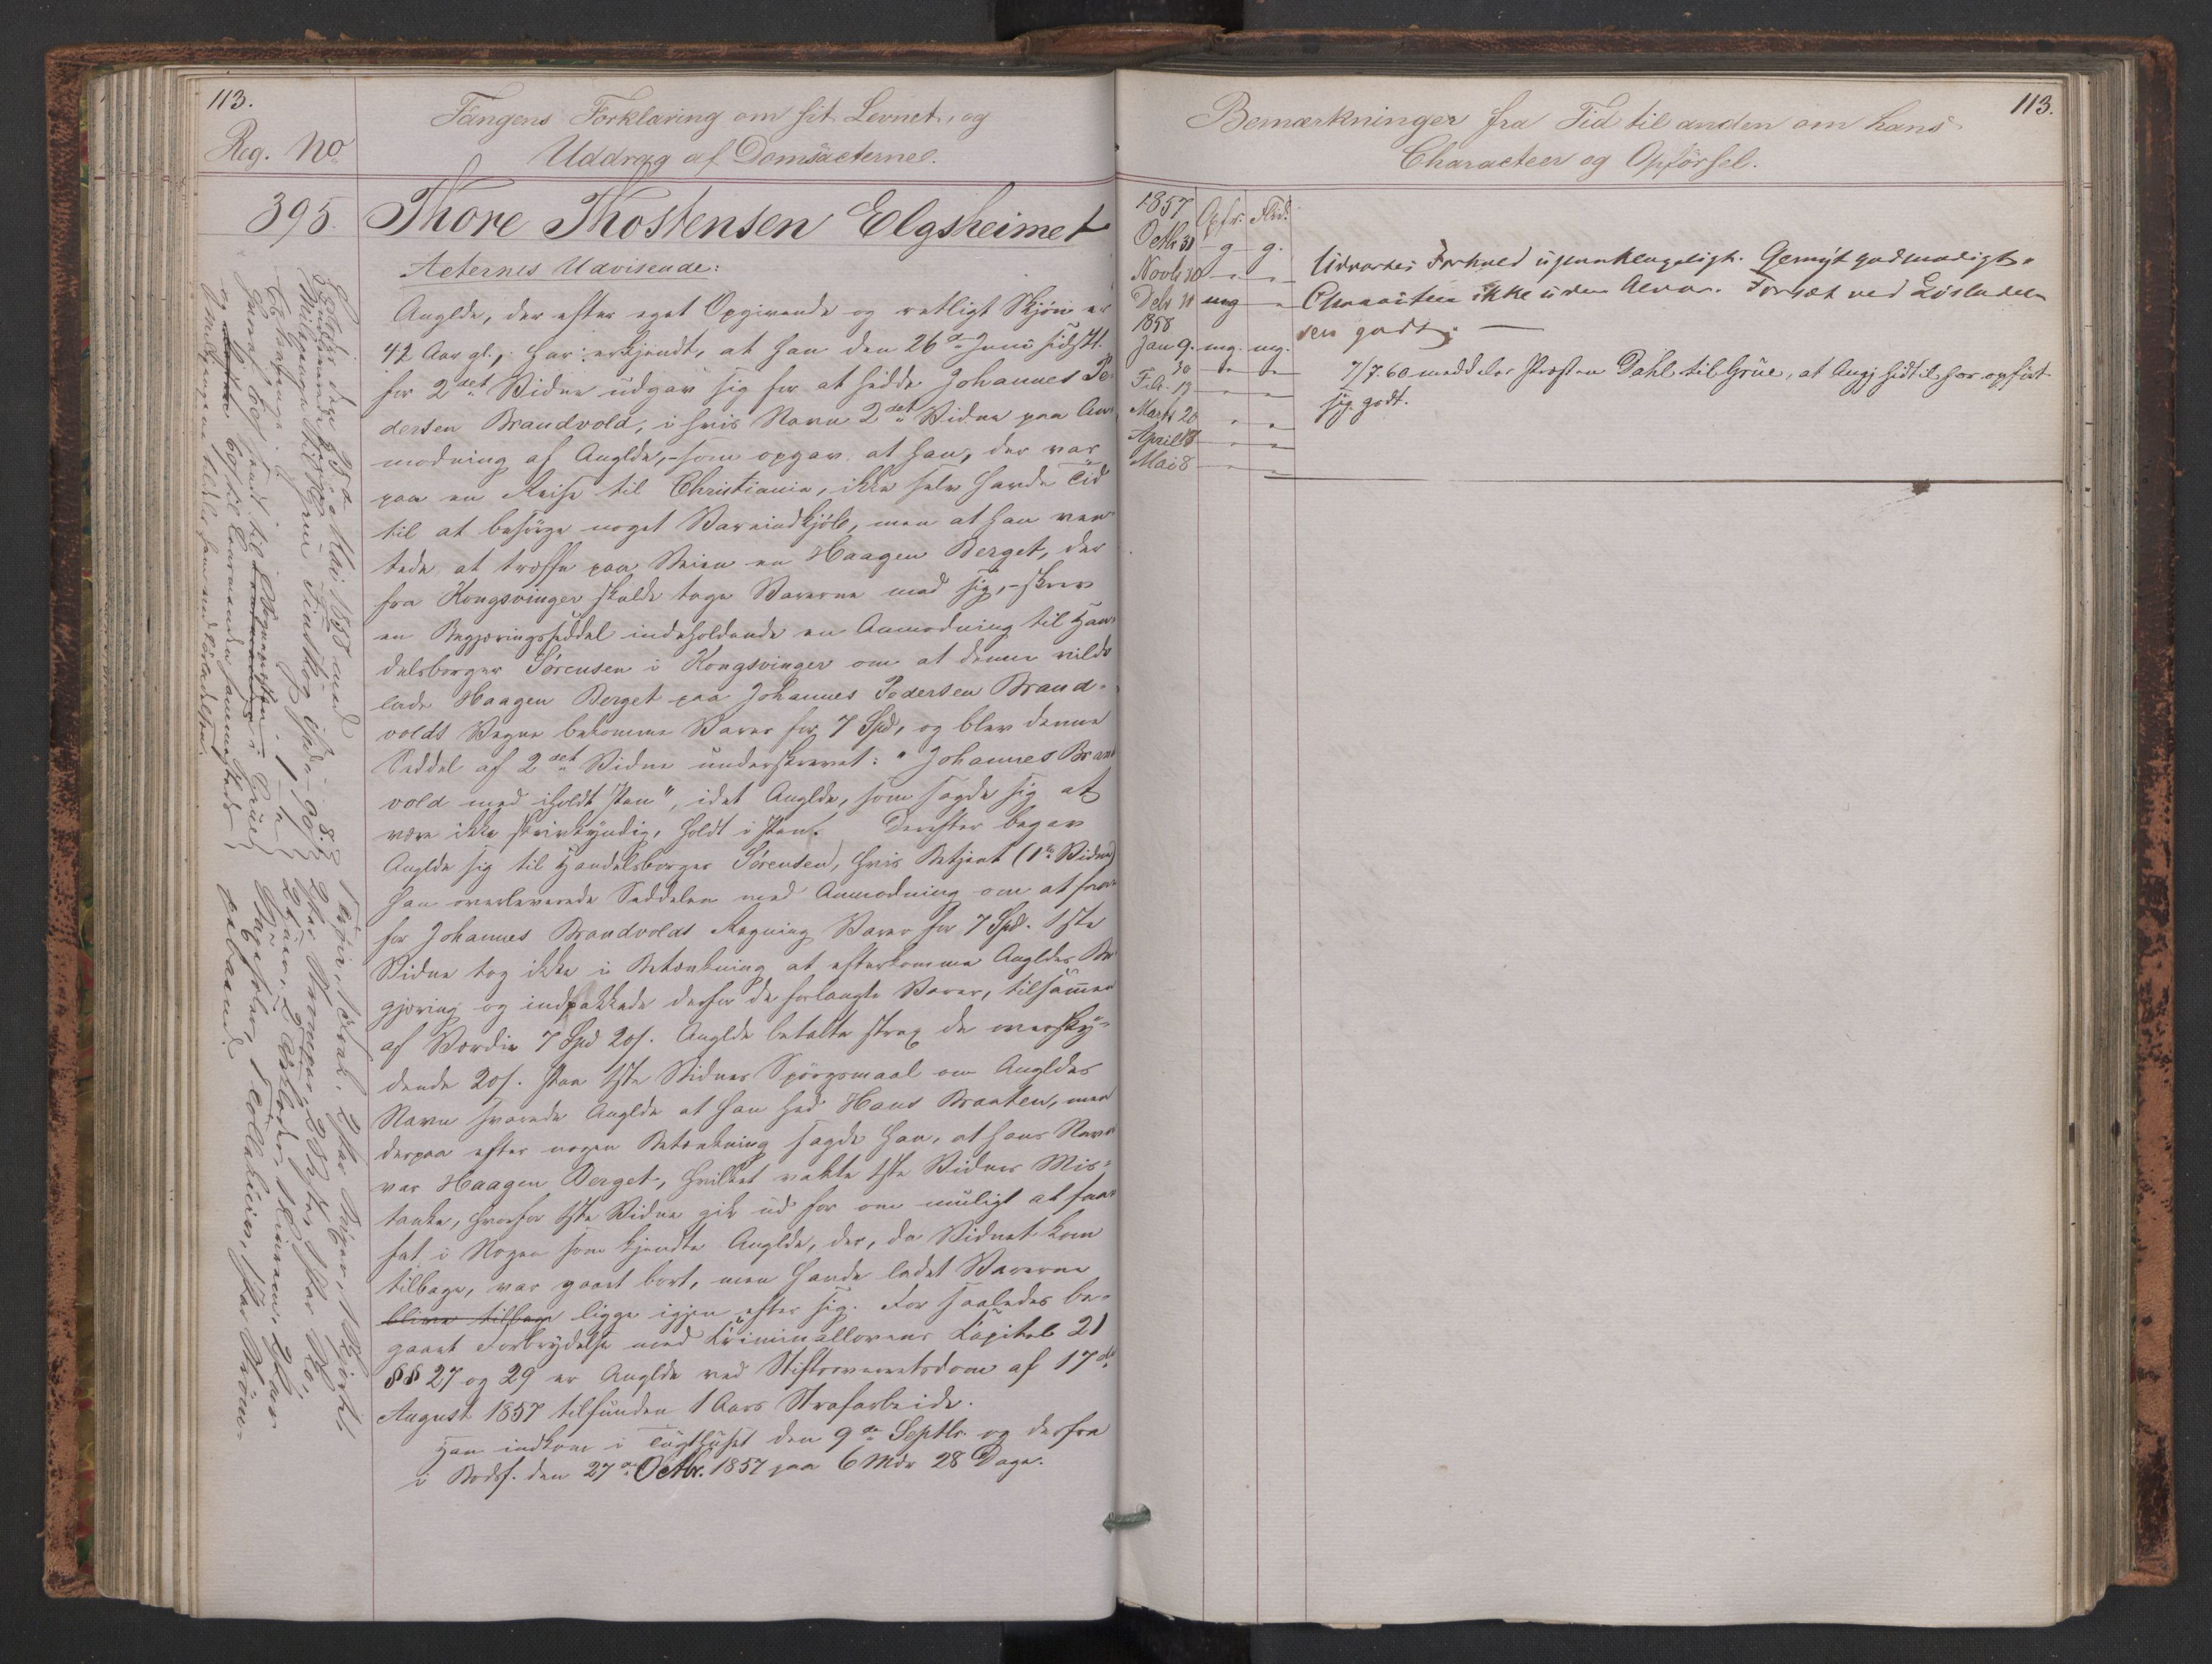 113.
Reg. No
Fangens Forklaring om sit Levnet, og
Uddrag af Domsacterne.
395.
Thore Thostensen Elgsheimet
Acternes Udvisende:
Anglde, der efter eget Opgivende og retligt Skjøn er
42 Aar gl., har erkjendt, at han den 26de Juni sidstl.
for 2det Vidne udgav sig for at hedde Johannes Pe-
dersen Brandvold, i hvis Navn 2det Vidne paa An-
modning af Anglde, – som opgav at han, der var
paa en Reise til Christiania, ikke selv havde Tid
til at besørge noget Vareindkjøb, men at han ven-
tede at træffe paa Veien en Haagen Berget, der
fra Kongsvinger skulde tage Varerne med sig, – skrev
en Begjæringsseddel indeholdende en Anmodning til Han-
delsborger Sørensen i Kongsvinger om at denne vilde
lade Haagen Berget paa Johannes Pedersen Brand-
volds Vegne bekomme Varer for 7 Spd, og blev denne
Seddel af 2det Vidne underskrevet: "Johannes Brand
vold med iholdt Pen", idet Anglde, som sagde sig at
være ikke skrivkyndig, holdt i Pen. Derefter begav
Anglde sig til Handelsborger Sørensen, hvis Betjent (1ste Vidne)
han overleverede Seddelen med Anmodning om at faae
for Johannes Brandvolds Regning Varer for 7 Spd. 1ste
Vidne tog ikke i Betænkning at efterkomme Angldes Be
gjæring og indpakkede derfor de forlangte Varer, tilsammen
af Værdie 7 Spd 20 s. Anglde betalte strax de oversky-
dende 20 s. Paa 1ste Vidnes Spørgsmaal om Angldes
Navn svarede Anglde at han hed Hans Braaten, men
derpaa efter nogen Betænkning sagde han, at hans Navn
var Haagen Berget, hvilket vakte 1ste Vidnes Mis-
tanke, hvorfor 1ste Vidne gik ud for om muligt at faae
fat i Nogen som kjendte Anglde, der, da Vidnet kom
tilbage, var gaaet bort, men havde ladet Varerne
blive tilbage ligge igjen efter sig. For saaledes be-
gaaet Forbrydelse mod Kriminallovens Kapitel 21
§§ 27 og 29 er Anglde ved Stiftsoverretsdom af 17de
August 1857 tilfunden 1 Aars Strafarbeide.
Han indkom i Tugthuset den 9de Septbr. og derfra
i Bodsf. den 27de Octbr. 1857 paa 6 Mdr 28 Dage.
Løsladt den 25de Mai 1858 med
113.
Bemærkninger fra Tid til anden om hans
Characteer og Opførsel.
1857 Opfr. Flid.
Octb 31 g g.
Novb 30 " "
Debr 31 mg "
1858
Jan 9. mg. mg.
30 " "
Feb. 19 " "
Marts 20 " "
April 18 " "
Mai 8 " "
Udvortes Forhold upaaklageligt. Gemyt godmodigt.
Characteer ikke uden Alvor. Forsæt ved Løsladel-
sen godt. —
7/7.60 meddeler Præsten Dahl til Grue, at Angj hidtil har opført
sig godt.